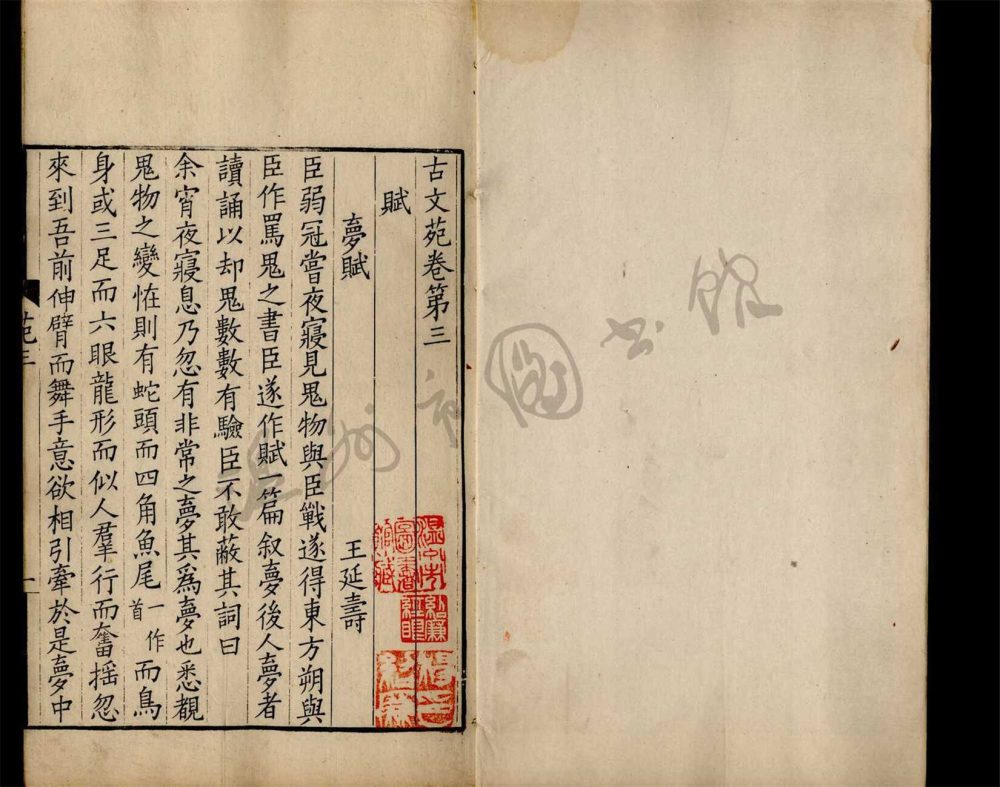 古文苑卷第三
賦
夢賦　王延壽
臣弱冠嘗夜寢見鬼物與臣戰遂得東方朔與
臣作罵鬼之書臣遂作賦一篇叙夢後人夢者
讀誦以却鬼數數有驗臣不敢蔽其詞曰
余宵夜寢息乃忽有非常之夢其為夢也悉覩
鬼物之變恠則有蛇頭而四角魚尾一作首而鳥
身或三足而六眼龍形而似人羣行而奮揺忽
來到吾前伸臂而舞手意欲相引牽於是夢中
苑三
一
溫州市圖書館藏
溫州市圖書館